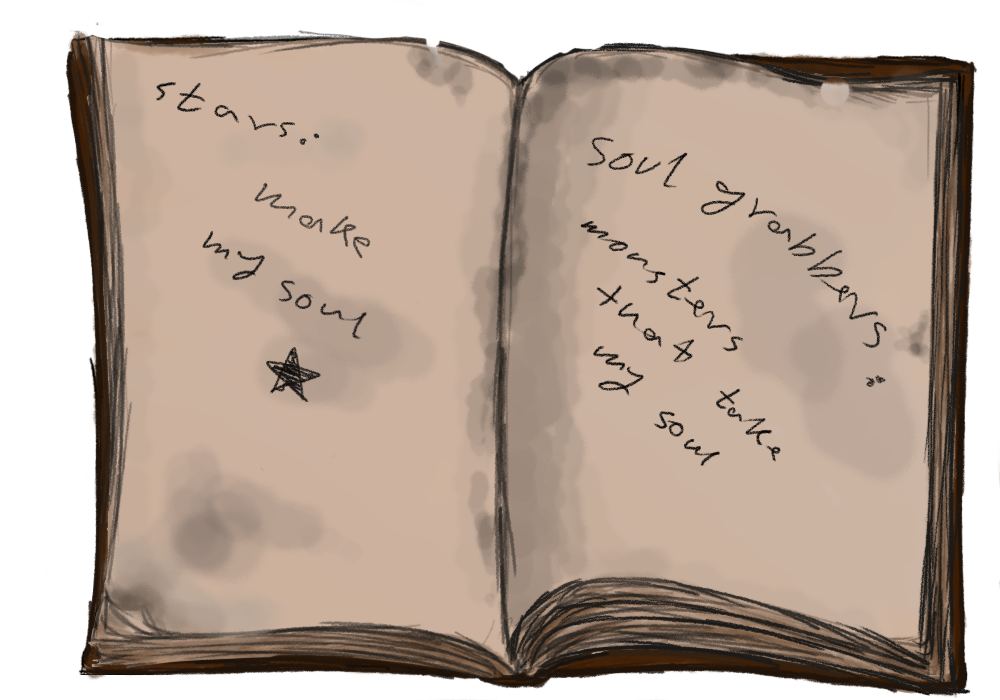 stars:
make
my soul
soul grabbers:
monsters
that take
my soul